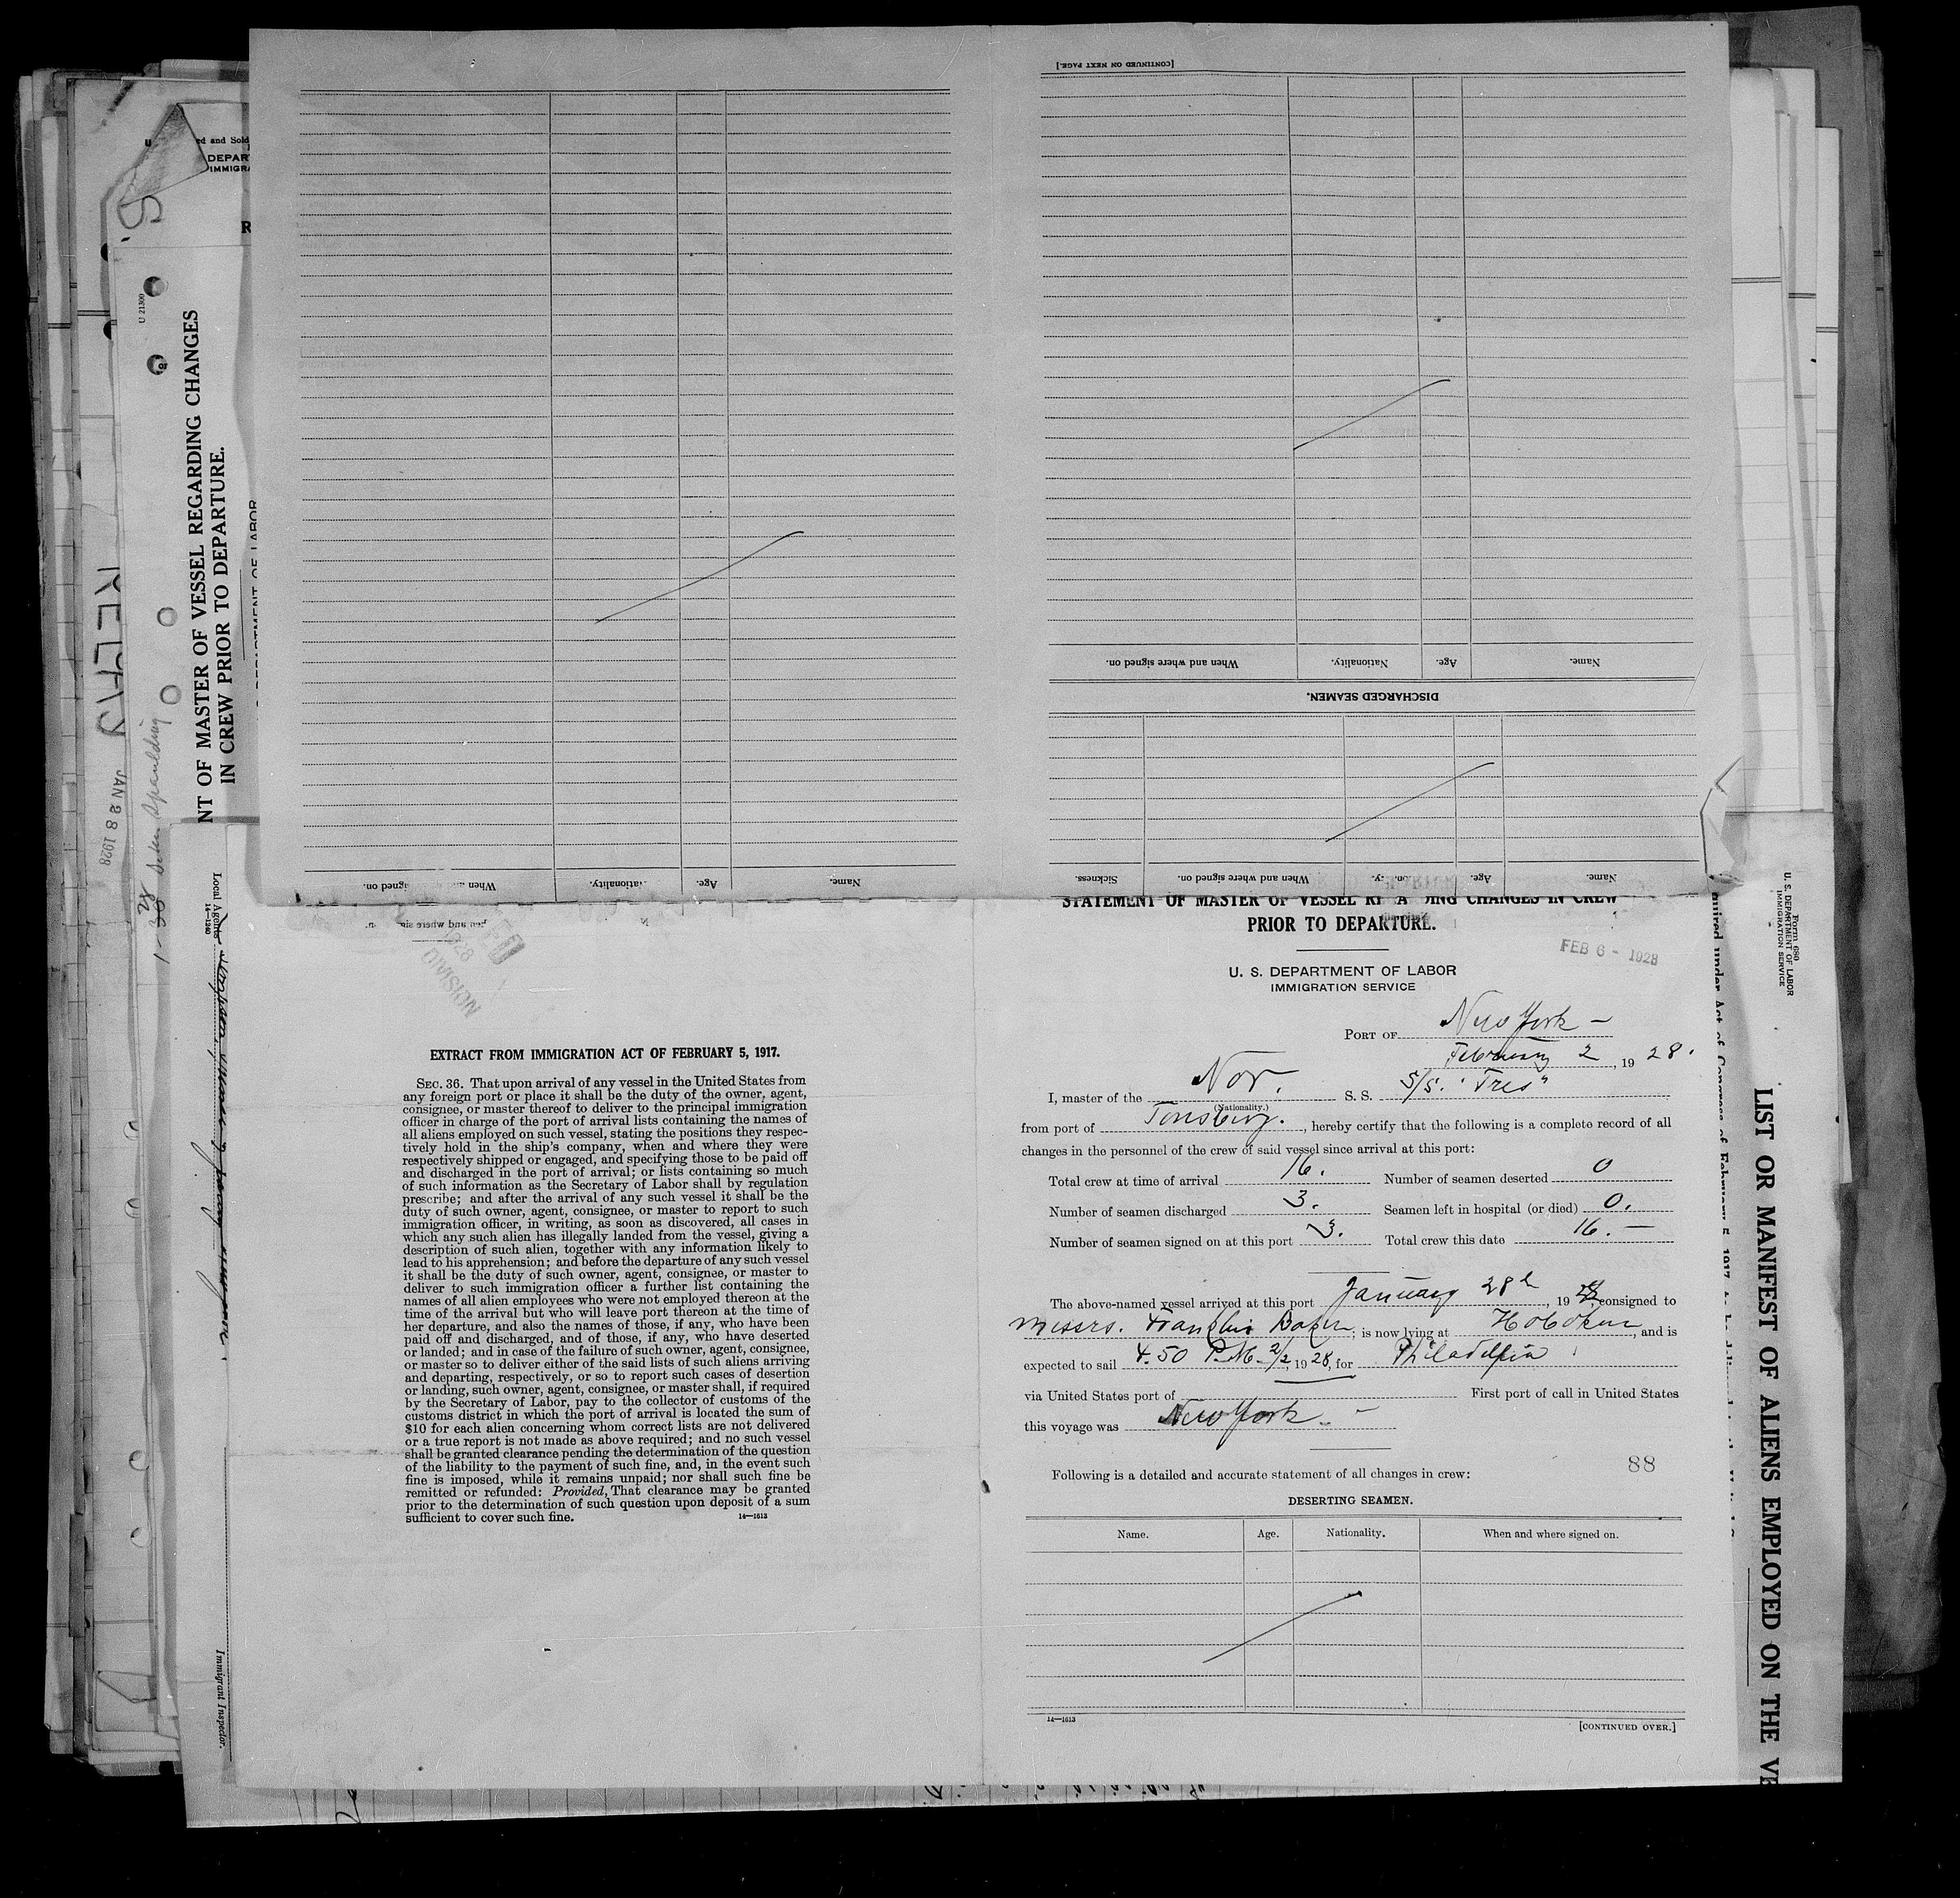 [CONTINUED ON NEXT PAGE.]
When and where signed on.
Nationality.
Age.
Name.
DISCHARGED SEAMEN.
Sickness.
When and where signed on.
Age.
Name.
When and signed on.
Nationality.
Age.
Name.
ed and Sold
DEPAR
IMMIGRA
U 21300
NT OF MASTER OF VESSEL REGARDING CHANGES
IN CREW PRIOR TO DEPARTURE.
DEPARTMENT OF LABOR
JAN 28 1928
Local Agents
14-1240
Immigrant Inspector.
1928
DIVISION
EXTRACT FROM IMMIGRATION ACT OF FEBRUARY 5, 1917.
SEC. 36. That upon arrival of any vessel in the United States from
any foreign port or place it shall be the duty of the owner, agent,
consignee, or master thereof to deliver to the principal immigration
officer in charge of the port of arrival lists containing the names of
all aliens employed on such vessel, stating the positions they respec-
tively hold in the ship's company, when and where they were
respectively shipped or engaged, and specifying those to be paid off
and discharged in the port of arrival; or lists containing so much
of such information as the Secretary of Labor shall by regulation
prescribe; and after the arrival of any such vessel it shall be the
duty of such owner, agent, consignee, or master to report to such
immigration officer, in writing, as soon as discovered, all cases in
which any such alien has illegally landed from the vessel, giving a
description of such alien, together with any information likely to
lead to his apprehension; and before the departure of any such vessel
it shall be the duty of such owner, agent, consignee, or master to
deliver to such immigration officer a further list containing the
names of all alien employees who were not employed thereon at the
time of the arrival but who will leave port thereon at the time of
her departure, and also the names of those, if any, who have been
paid off and discharged, and of those, if any, who have deserted
or landed; and in case of the failure of such owner, agent, consignee,
or master so to deliver either of the said lists of such aliens arriving
and departing, respectively, or so to report such cases of desertion
or landing, such owner, agent, consignee, or master shall, if required
by the Secretary of Labor, pay to the collector of customs of the
customs district in which the port of arrival is located the sum of
$10 for each alien concerning whom correct lists are not delivered
or a true report is not made as above required; and no such vessel
shall be granted clearance pending the determination of the question
of the liability to the payment of such fine, and, in the event such
fine is imposed, while it remains unpaid; nor shall such fine be
remitted or refunded: Provided, That clearance may be granted
prior to the determination of such question upon deposit of a sum
sufficient to cover such fine.
14-1613
STATEMENT OF MASTER OF VESSEL RE A DING CHANGES IN CREW
PRIOR TO DEPARTURE.
FEB 6 - 1928
U. S. DEPARTMENT OF LABOR
IMMIGRATION SERVICE
PORT OF New York -
February 2, 1928.
I, master of the Nor. S. S. S/S. "Tres"
(Nationality.)
from port of Tonsberg., hereby certify that the following is a complete record of all
changes in the personnel of the crew of said vessel since arrival at this port:
Total crew at time of arrival 16. Number of seamen deserted 0
Number of seamen discharged 3. Seamen left in hospital (or died) 0.
Number of seamen signed on at this port 3. Total crew this date 16. -
The above-named vessel arrived at this port January 28th, 1928 consigned to
Messrs. Franklin Baker; is now lying at Hoboken, and is
expected to sail 4.50 P.M. 2/2, 1928, for Philadelfia
via United States port of First port of call in United States
this voyage was New York -
88
Following is a detailed and accurate statement of all changes in crew:
DESERTING SEAMEN.
Name. Age. Nationality. When and where signed on.
14-1613
[CONTINUED OVER.]
Form 680
U. S. DEPARTMENT OF LABOR
IMMIGRATION SERVICE
LIST OR MANIFEST OF ALIENS EMPLOYED ON THE VE